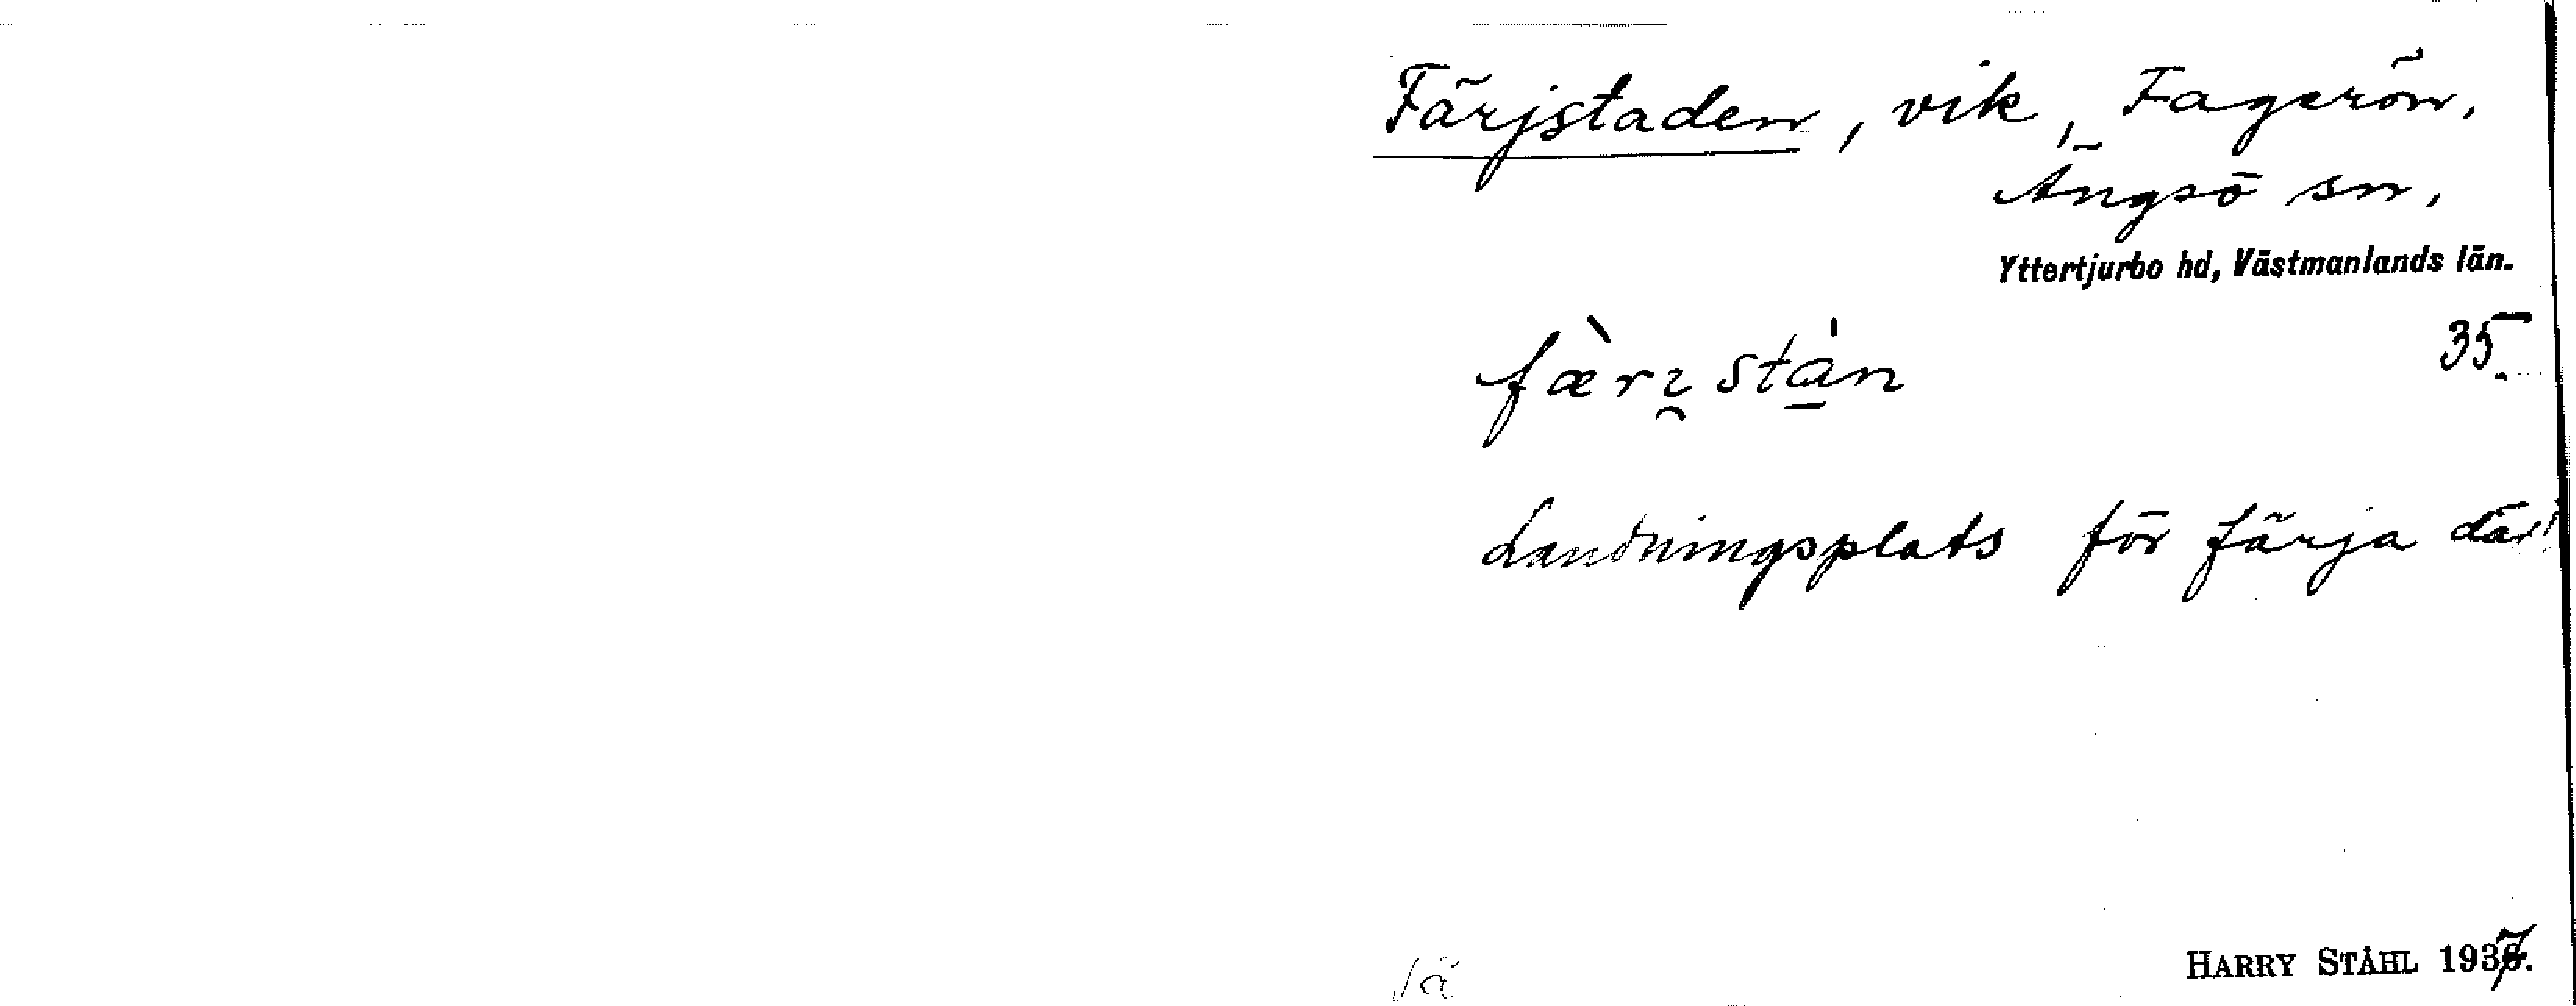 Färjstaden, vik, Fagerön.
Ängsö sn.
Yttertjurbo hd, Västmanlands län.
35
færɪstan
Landningsplats för färja där
HARRY STÅHL 1937.